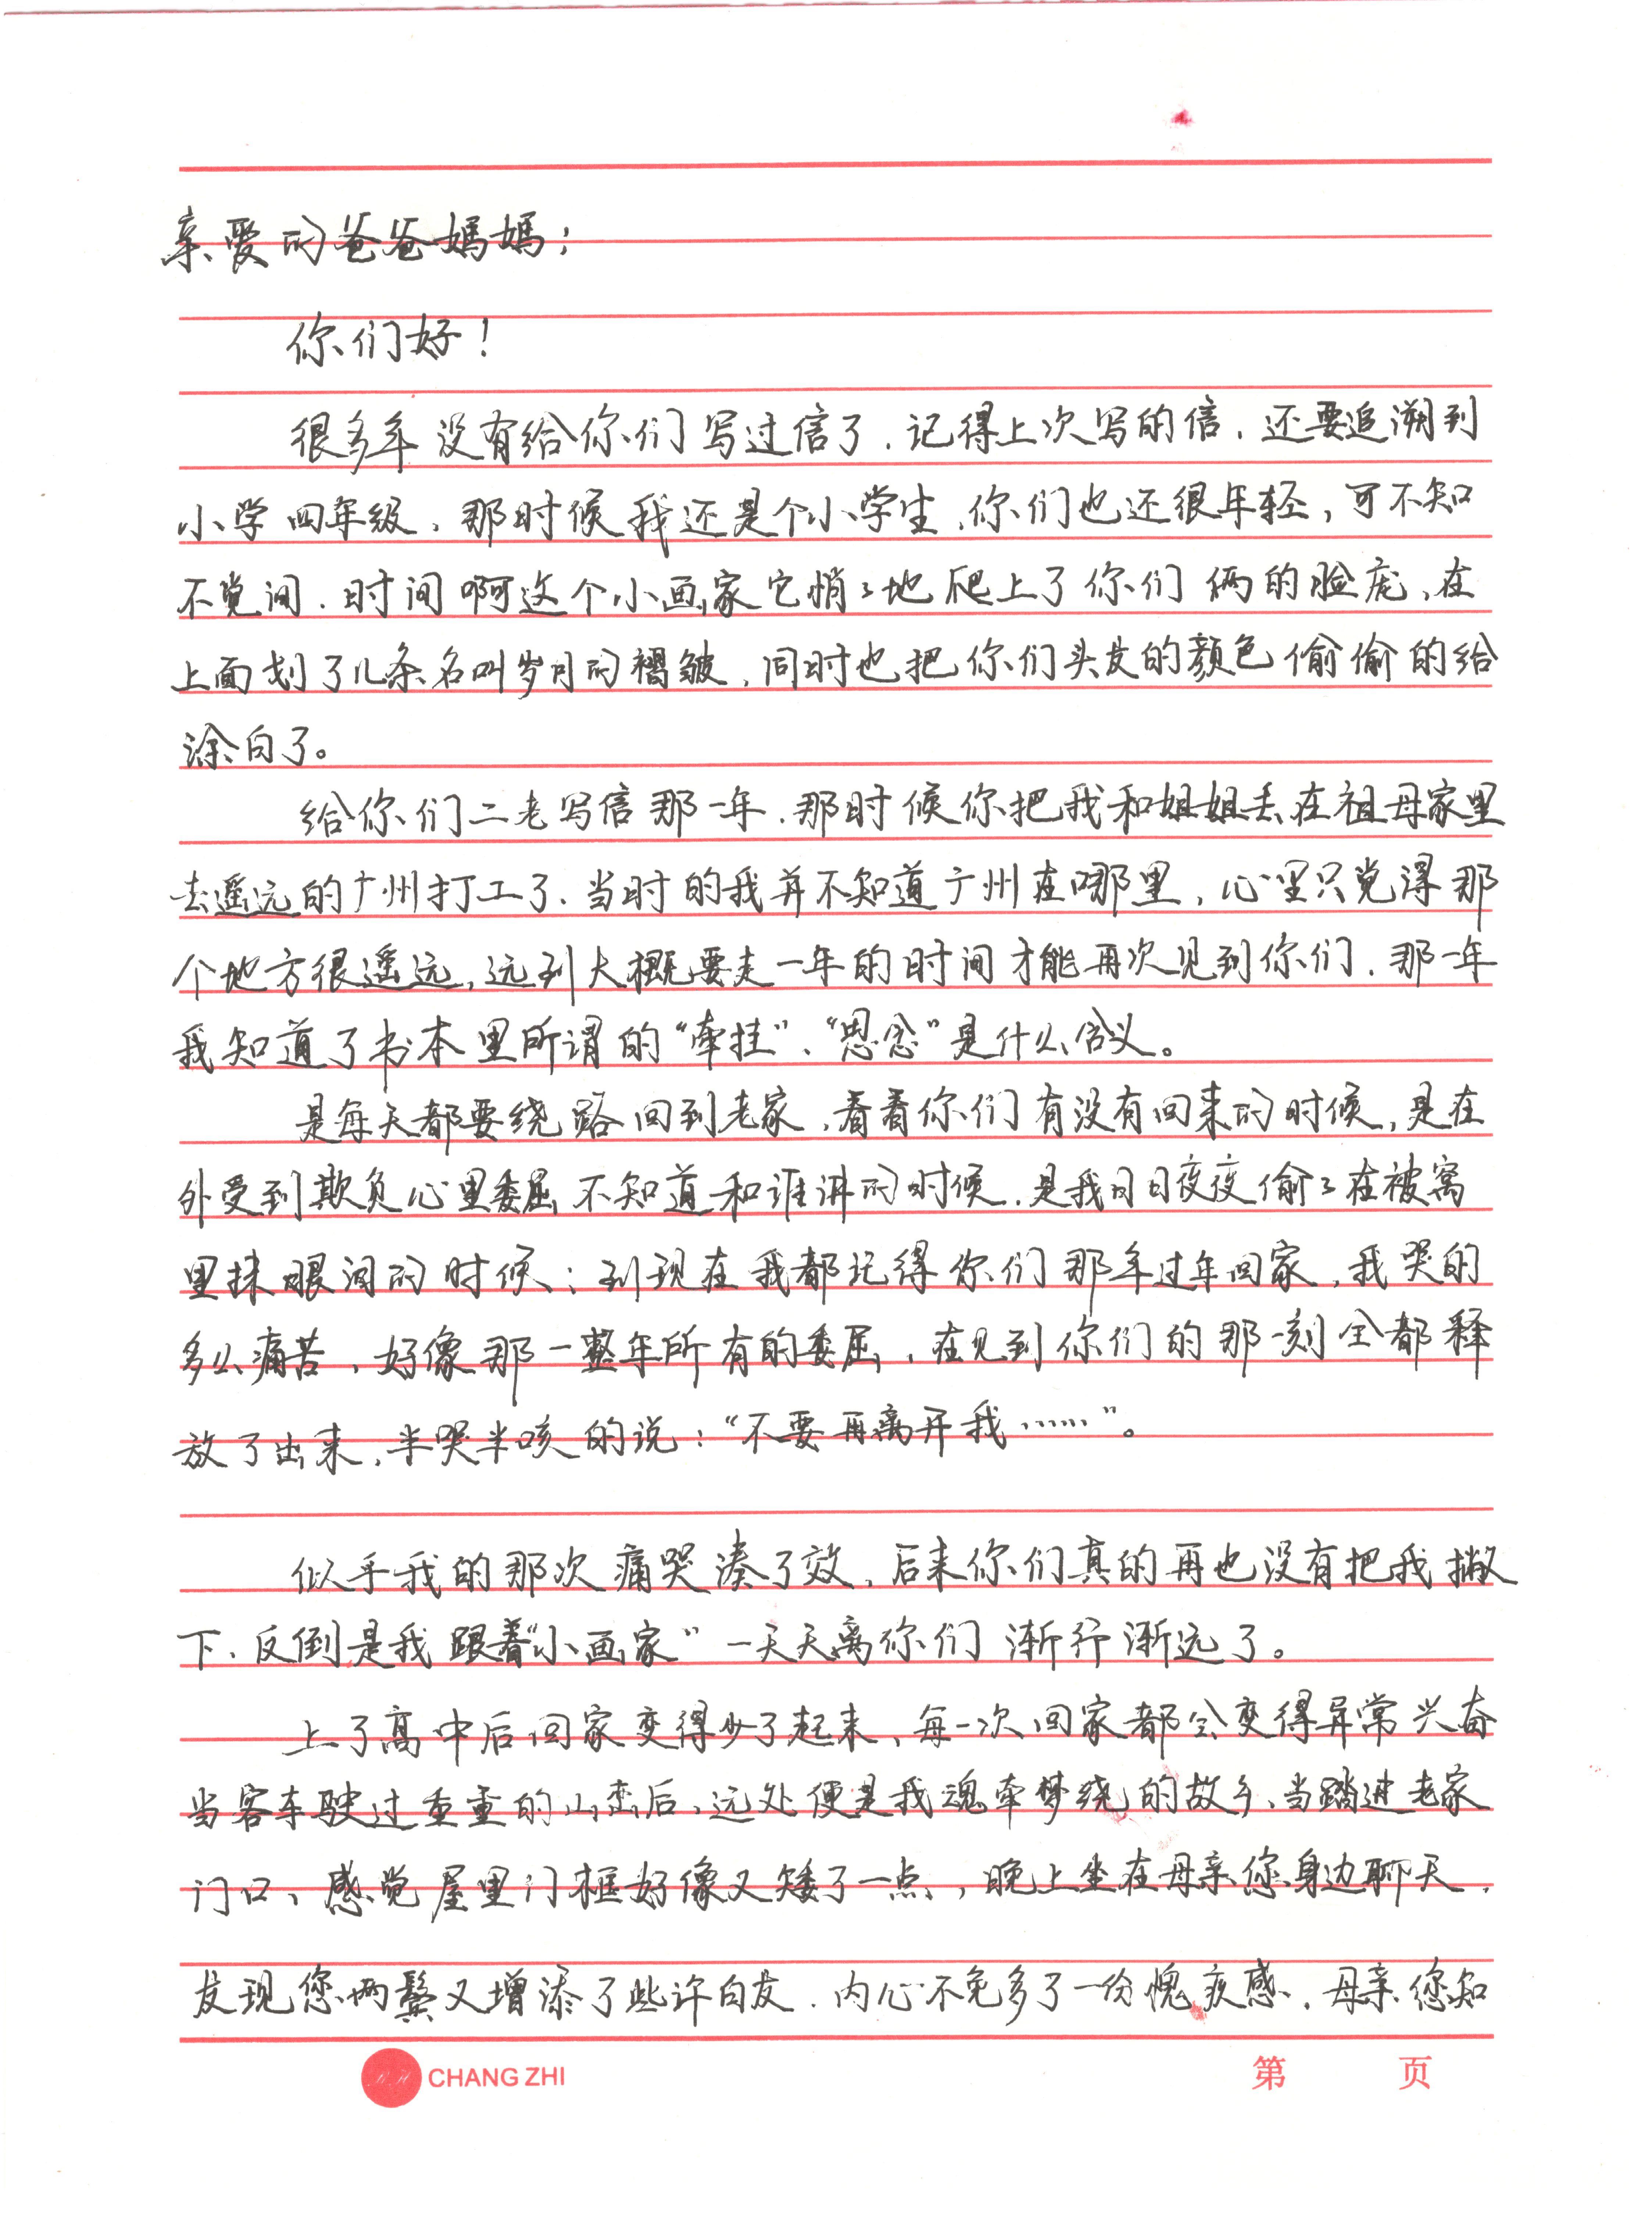 亲爱的爸爸媽媽：
你们好！
很多年没有给你们写过信了，记得上次写的信，还要追溯到
小学四年级，那时候我还是个小学生，你们也还很年轻，可不知
不觉间，时间啊这个小画家它悄々地爬上了你们俩的脸庞，在
上面划了几条名叫岁月的褶皱，同时也把你们头发的颜色偷偷的给
涂白了。
给你们二老写信那一年，那时候你把我和姐姐丢在祖母家里
去遥远的广州打工了，当时的我并不知道广州在哪里，心里只觉得那
个地方很遥远，远到大概要走一年的时间才能再次见到你们，那一年
我知道了书本里所谓的“牵挂”、“思念”是什么含义。
是每天都要绕路回到老家，看看你们有没有回来的时候，是在
外受到欺负心里委屈不知道和谁讲的时候，是我日日夜夜偷々在被窝
里抹眼泪的时候；到现在我都记得你们那年过年回家，我哭的
多么痛苦，好像那一整年所有的委屈，在见到你们的那一刻全都释
放了出来，半哭半咳的说：“不要再离开我……”。
似乎我的那次痛哭凑了效，后来你们真的再也没有把我撇
下，反倒是我跟着“小画家”一天天离你们渐行渐远了。
上了高中后回家变得少了起来，每一次回家都会变得异常兴奋
当客车驶过重重的山峦后，远处便是我魂牵梦绕的故乡，当踏进老家
门口，感觉屋里门框好像又矮了一点，晚上坐在母亲您身边聊天，
发现您两鬓又增添了些许白发，内心不免多了一份愧疚感，母亲您知
CHANG ZHI
第 页